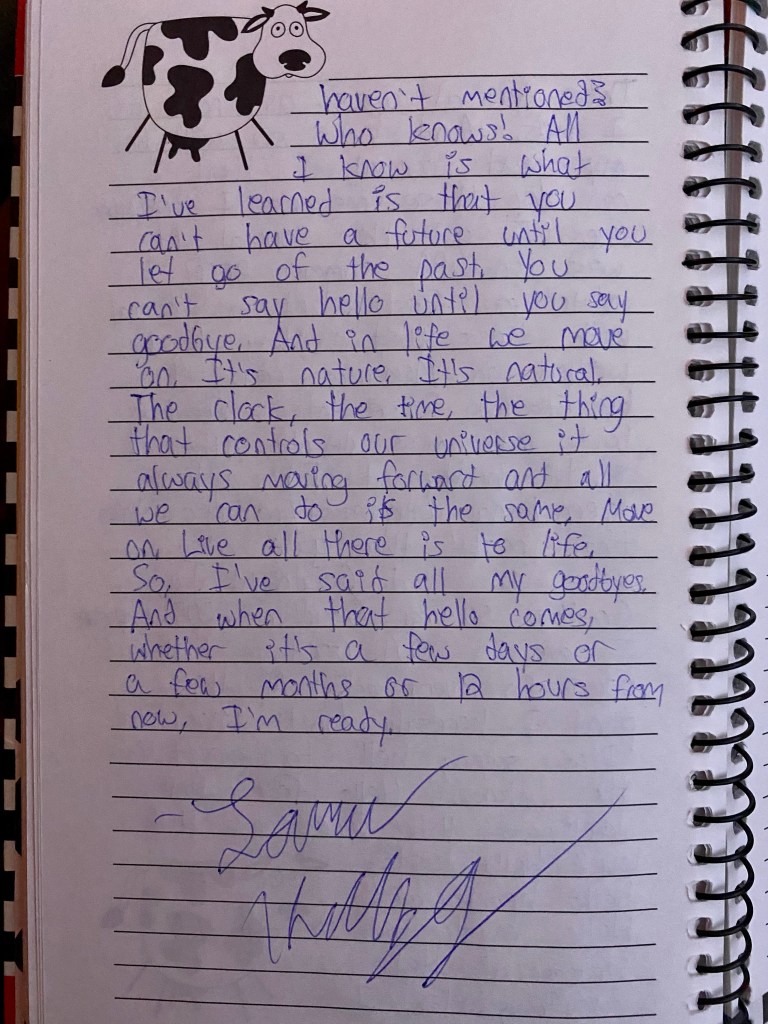 haven't mentioned?
Who knows! All
I know is what
I've learned is that you
can't have a future until you
let go of the past. You
can't say hello until you say
goodbye. And in life we move
on. It's nature. It's natural.
The clock, the time, the thing
that controls our universe it
always moving forward and all
we can do is the same. Move
on Live all there is to life.
So, I've said all my goodbyes.
And when that hello comes,
whether it's a few days or
a few months or 12 hours from
now, I'm ready.